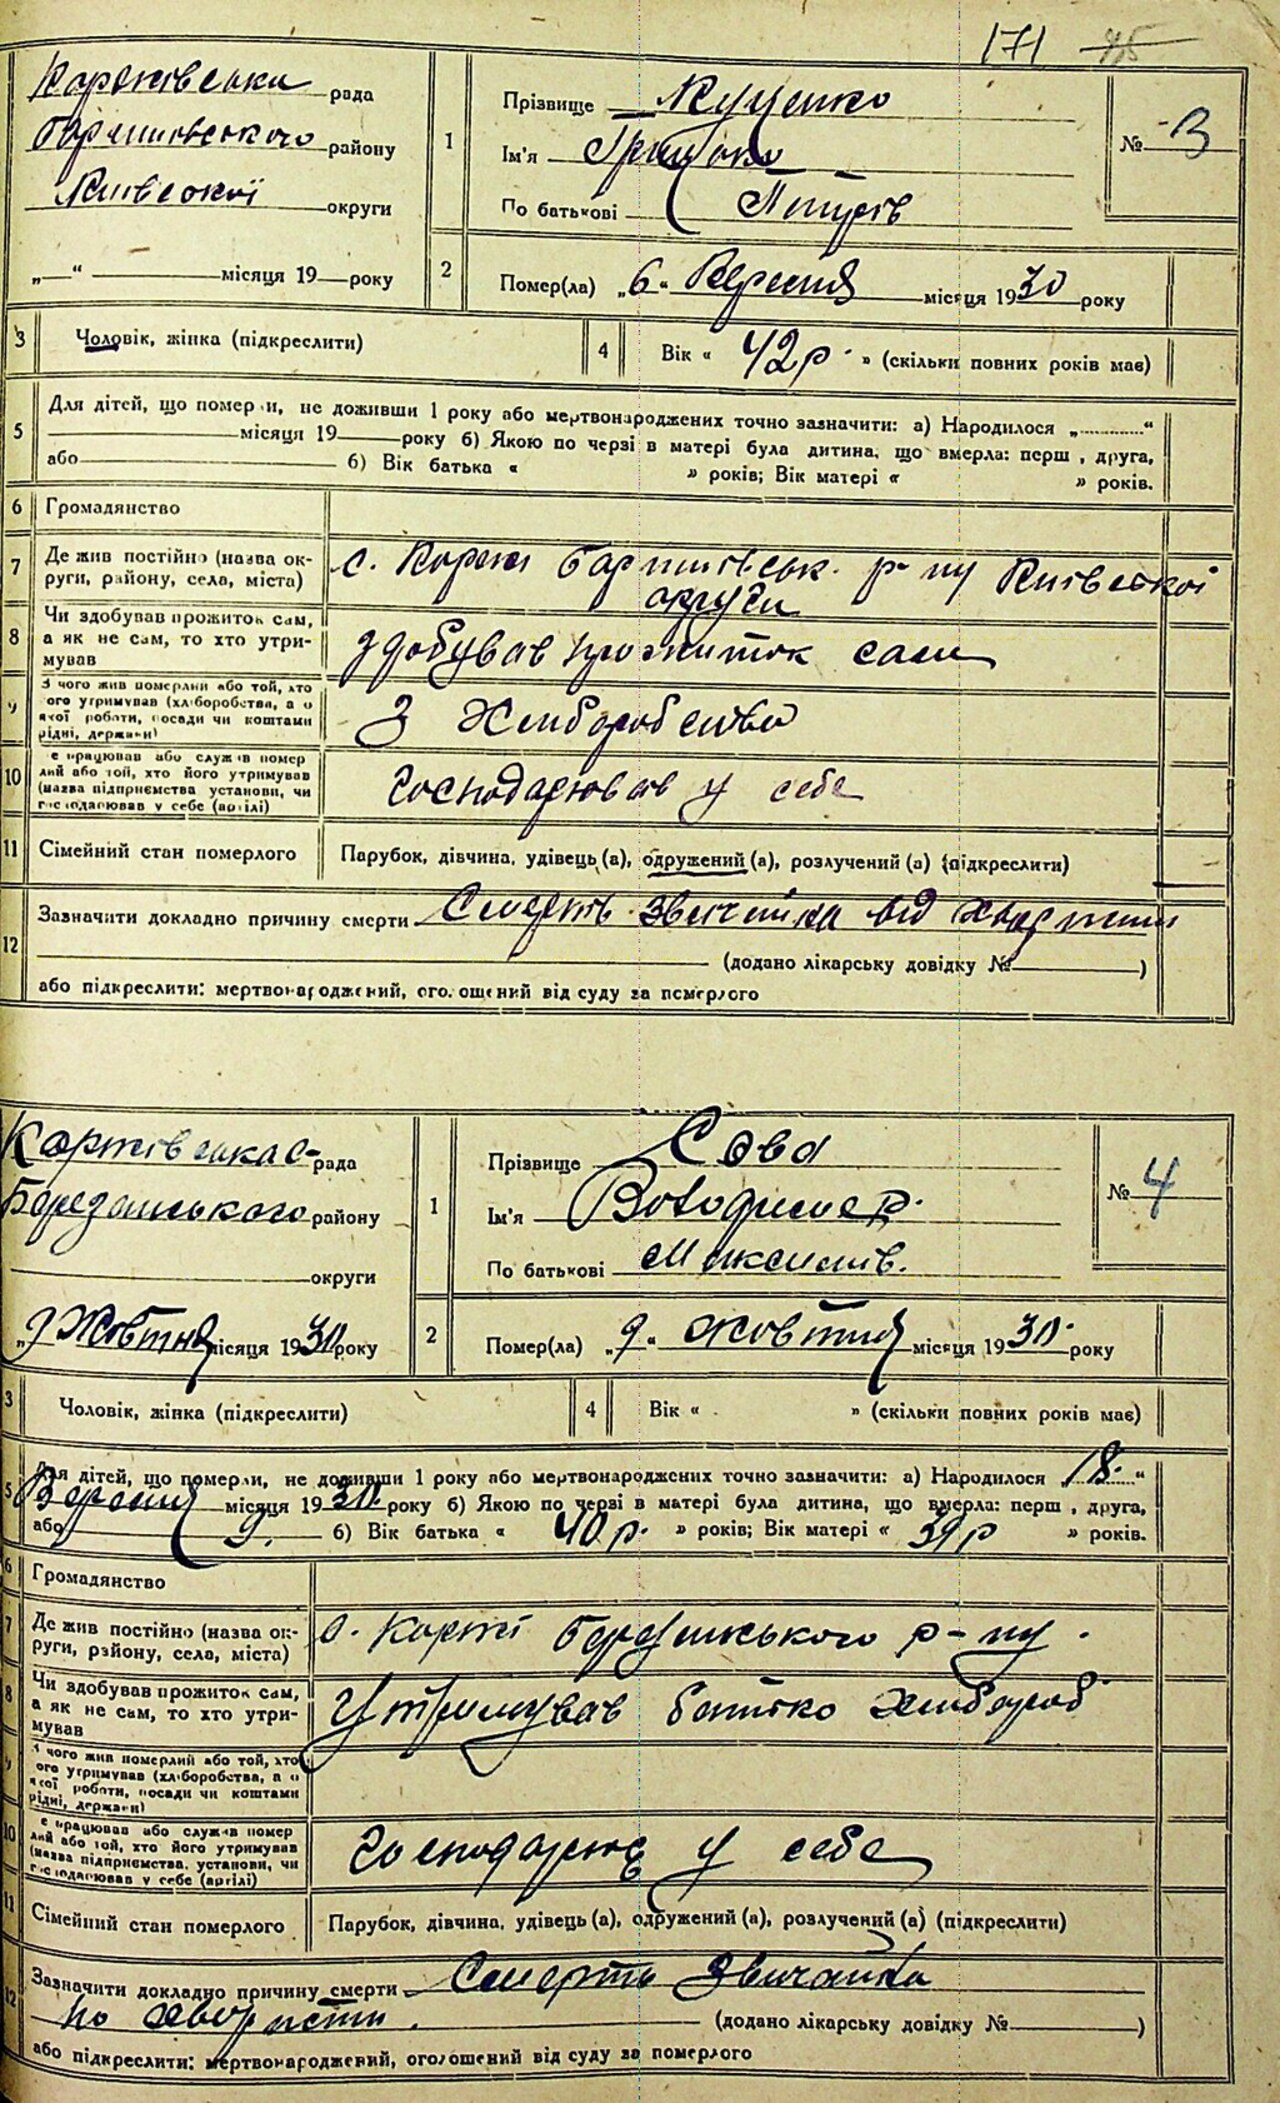 171 45
Коржівська рада
Баришівського району
Київської округи
„—“ місяця 19 року
1
Прізвище Куценко
Ім'я Грицько
По батькові Петрів
№ 3
2
Помер(ла) „6“ Вересня місяця 1930 року
3 Чоловік, жінка (підкреслити)
4 Вік « 42 р. » (скільки повних років має)
5 Для дітей, що померли, не доживши 1 року або мертвонароджених точно зазначити: а) Народилося „ “
місяця 19 року б) Якою по черзі в матері була дитина, що вмерла: перш , друга,
або б) Вік батька « » років; Вік матері « » років.
6 Громадянство
7 Де жив постійно (назва ок-
руги, району, села, міста)
с. Коржі Баришівськ. р-ну Київської
округи
8 Чи здобував прожиток сам,
а як не сам, то хто утри-
мував
здобував прожиток сам
9 З чого жив померлий або той, хто
ого утримував (хліборобства, а о
якої роботи, посади чи коштами
рідні, держави)
З Хліборобства
10 е працював або служив помер
лий або той, хто його утримував
(назва підприємства установи, чи
господарював у себе (артілі)
Господарював у себе
11 Сімейний стан померлого
Парубок, дівчина, удівець (а), одружений (а), розлучений (а) (підкреслити)
12 Зазначити докладно причину смерти Смерть звичайна від
(додано лікарську довідку № )
або підкреслити: мертвонароджений, оголошений від суду за померлого
Коржівська с- рада
Березанського району
округи
„9 Жовтня місяця 1930 року
1
Прізвище Сова
Ім'я Володимер.
По батькові Максимів.
№ 4
2
Помер(ла) „9“ жовтня місяця 1930. року
3 Чоловік, жінка (підкреслити)
4 Вік « » (скільки повних років має)
5 Для дітей, що померли, не доживши 1 року або мертвонароджених точно зазначити: а) Народилося „18.“
Вересня місяця 1930. року б) Якою по черзі в матері була дитина, що вмерла: перш , друга,
або 9. б) Вік батька « 40 р. » років; Вік матері « 39 р » років.
6 Громадянство
7 Де жив постійно (назва ок-
руги, району, села, міста)
с. Коржі Березанського р-ну.
8 Чи здобував прожиток сам,
а як не сам, то хто утри-
мував
Утримував батько хлібороб
9 З чого жив померлий або той, хто
ого утримував (хліборобства, а о
якої роботи, посади чи коштами
рідні, держави)
10 е працював або служив помер
лий або той, хто його утримував
(назва підприємства. установи, чи
господарював у себе (артілі)
Господарює у себе
11 Сімейний стан померлого
Парубок, дівчина, удівець (а), одружений (а), розлучений (а) (підкреслити)
12 Зазначити докладно причину смерти Смерть Звичайна
по
(додано лікарську довідку № )
або підкреслити: мертвонароджений, оголошений від суду за померлого